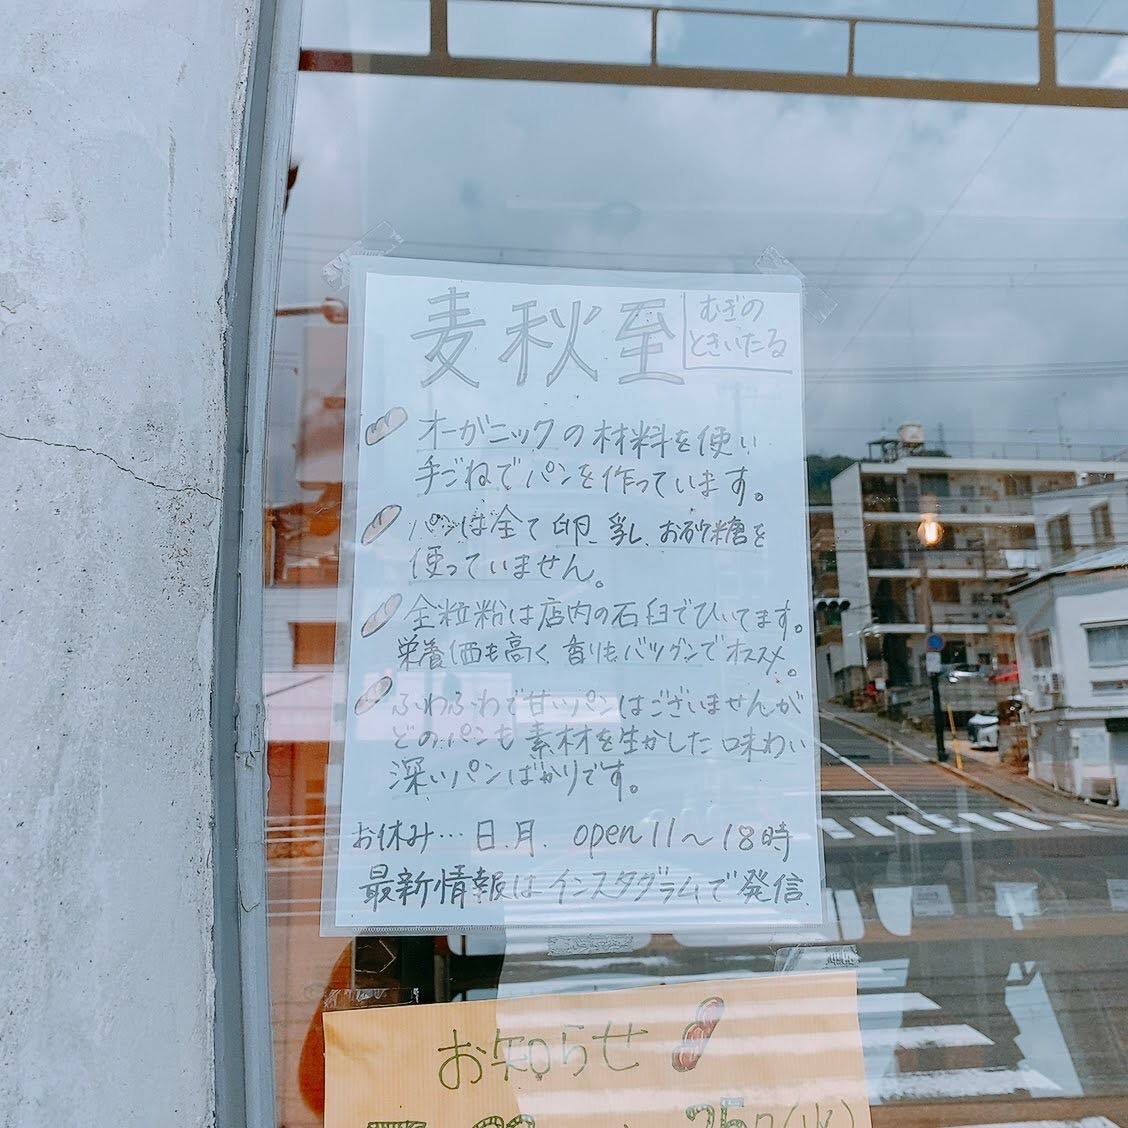 麦秋至
むぎの
ときいたる
オーガニックの材料を使い
手ごねでパンを作っています。
パンは全て卵、乳、お砂糖を
使っていません。
全粒粉は店内の石臼でひいてます。
栄養価も高く、香りもバツグンでオススメ。
ふわふわで甘いパンはございませんが
どのパンも素材を生かした味わい
深いパンばかりです。
お休み…日、月、open 11〜18時
最新情報はインスタグラムで発信、
お知らせ
25日(火)